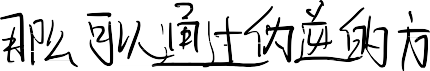 那么可以通过伪逆的方